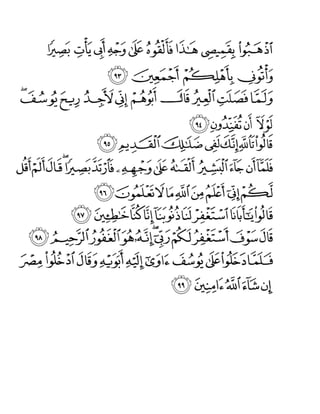 ٱذْهَبُوا۟ بِقَمِيصِى هَٰذَا فَأَلْقُوهُ عَلَىٰ وَجْهِ أَبِى يَأْتِ بَصِيرًا
وَأْتُونِى بِأَهْلِكُمْ أَجْمَعِينَ ٩٣
وَلَمَّا فَصَلَتِ ٱلْعِيرُ قَالَ أَبُوهُمْ إِنِّى لَأَجِدُ رِيحَ يُوسُفَ ۖ
لَوْلَآ أَن تُفَنِّدُونِ ٩٤
قَالُوا۟ تَٱللَّهِ إِنَّكَ لَفِى ضَلَٰلِكَ ٱلْقَدِيمِ ٩٥
فَلَمَّآ أَن جَآءَ ٱلْبَشِيرُ أَلْقَىٰهُ عَلَىٰ وَجْهِهِۦ فَٱرْتَدَّ بَصِيرًا ۖ قَالَ أَلَمْ أَقُل
لَّكُمْ إِنِّىٓ أَعْلَمُ مِنَ ٱللَّهِ مَا لَا تَعْلَمُونَ ٩٦
قَالُوا۟ يَٰٓأَبَانَا ٱسْتَغْفِرْ لَنَا ذُنُوبَنَآ إِنَّا كُنَّا خَٰطِـِٔينَ ٩٧
قَالَ سَوْفَ أَسْتَغْفِرُ لَكُمْ رَبِّىٓ ۖ إِنَّهُۥ هُوَ ٱلْغَفُورُ ٱلرَّحِيمُ ٩٨
فَلَمَّا دَخَلُوا۟ عَلَىٰ يُوسُفَ ءَاوَىٰٓ إِلَيْهِ أَبَوَيْهِ وَقَالَ ٱدْخُلُوا۟ مِصْرَ
إِن شَآءَ ٱللَّهُ ءَامِنِينَ ٩٩